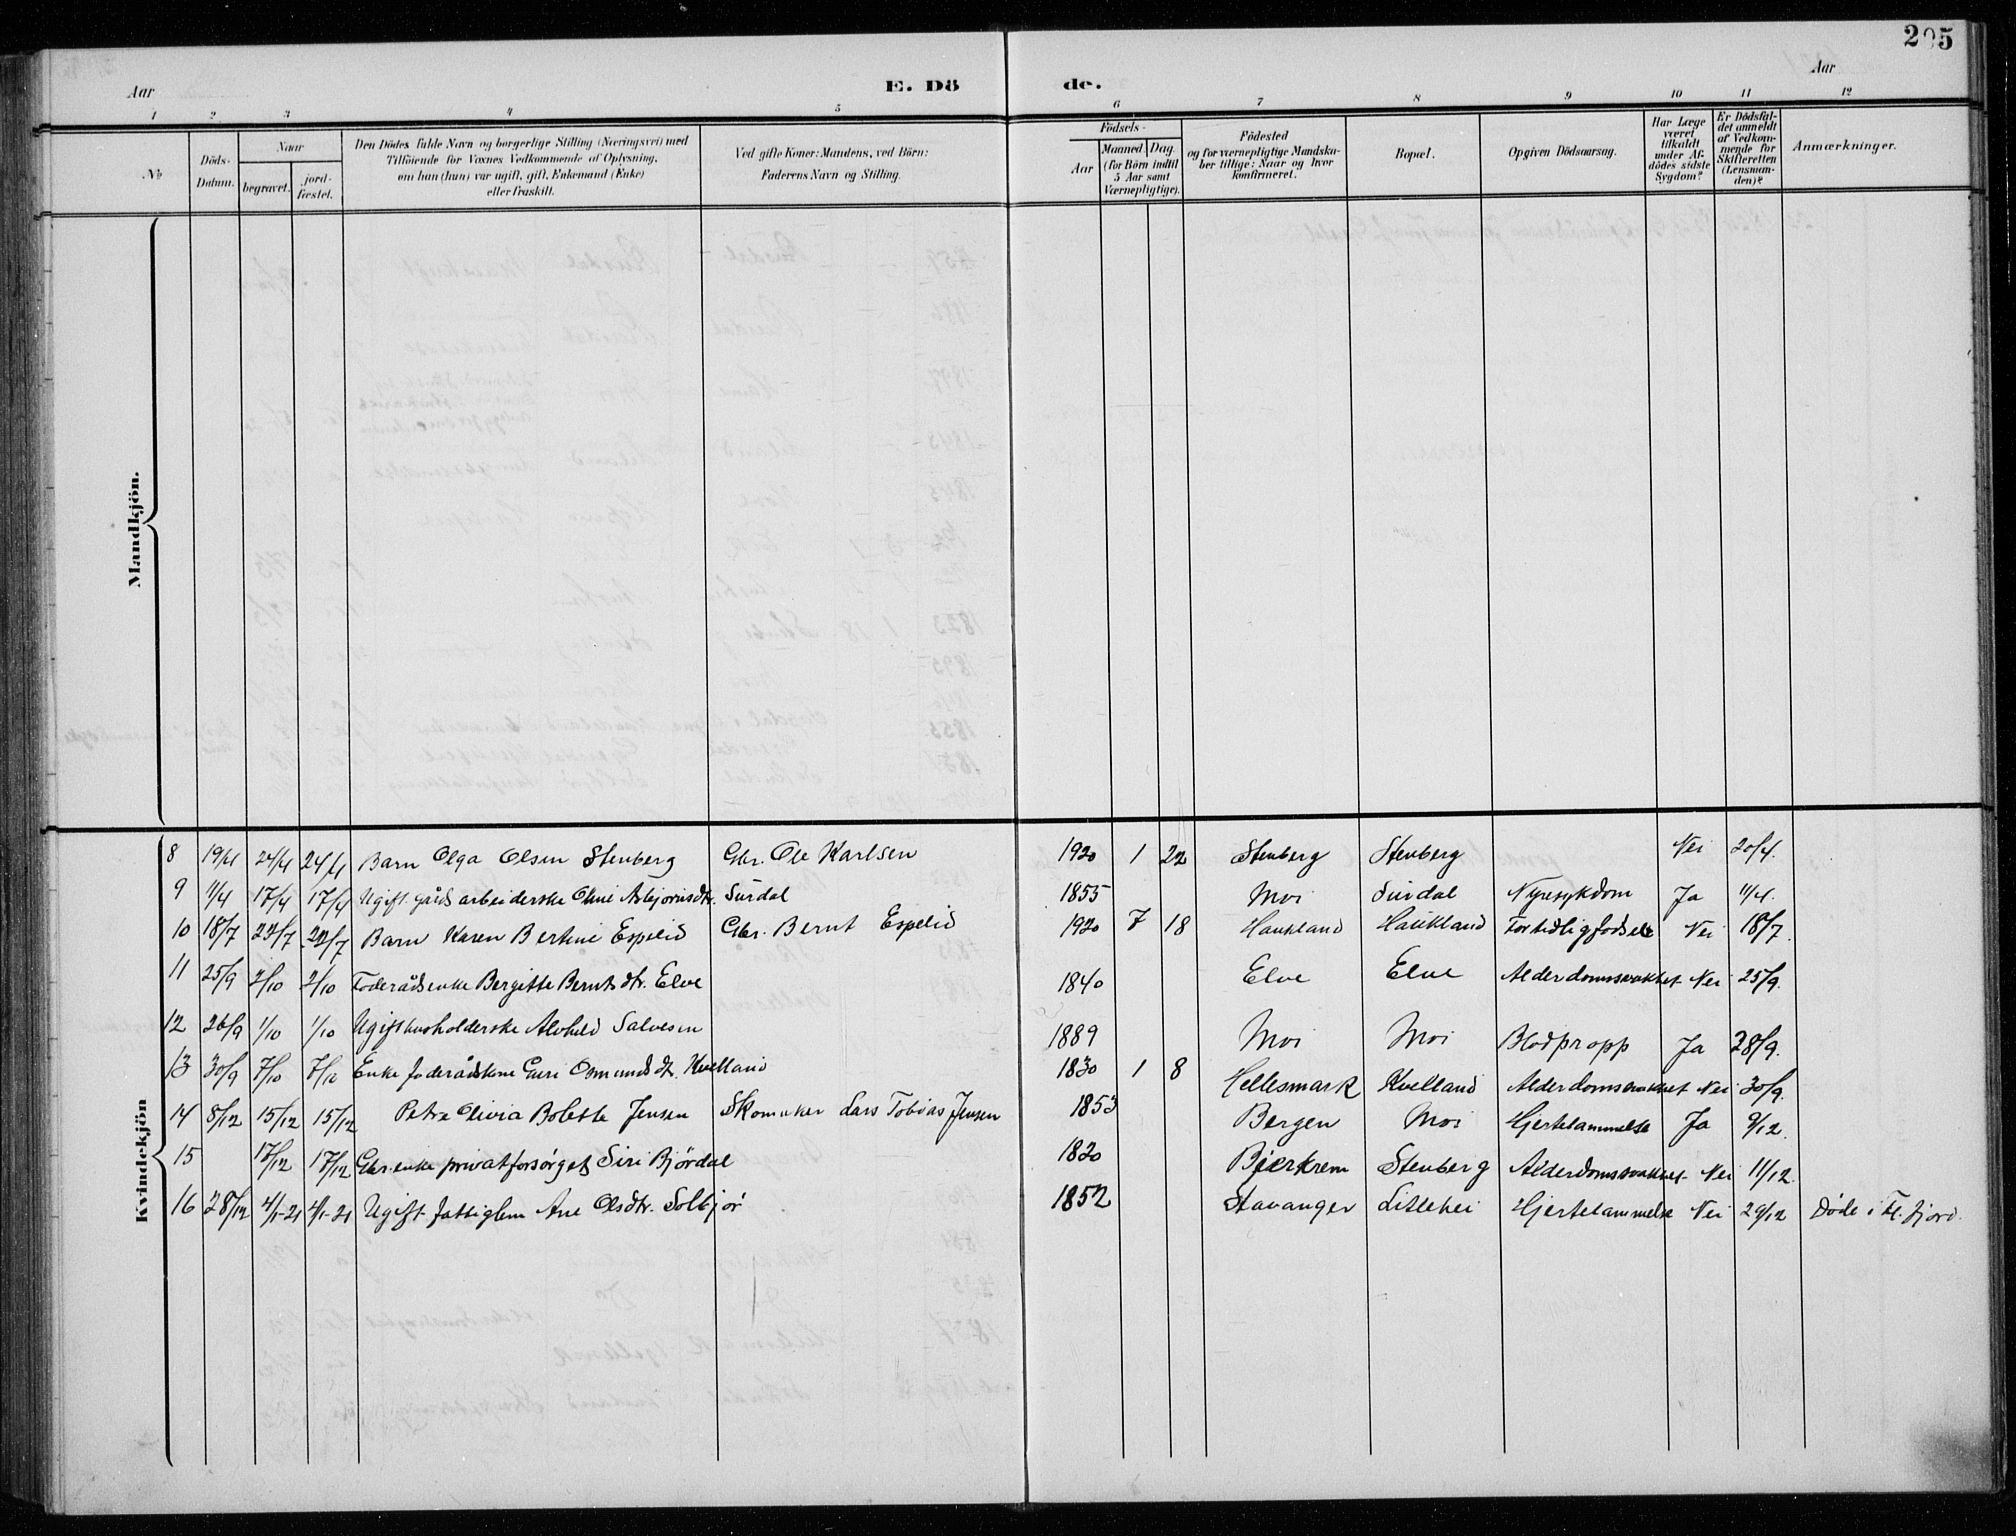 205
Aar E. Dö de. Aar
1 2 3 4 5 6 7 8 9 10 11 12
№ Döds-Datum. Naar begravet. jord-fæstet. Den Dödes fulde Navn og borgerlige Stilling (Næringsvei) med Tilföiende for Voxnes Vedkommende af Oplysning, om han (hun) var ugift, gift, Enkemand (Enke) eller fraskilt. Ved gifte Koner: Mandens, ved Börn: Faderens Navn og Stilling. Födsels- Aar Maaned. Dag. (for Börn indtil 5 Aar samt Værnepligtige). Födested og for værnepligtige Mandskaber tillige: Naar og hvor Konfirmeret. Bopæl. Opgiven Dödsaarsag. Har Læge været tilkaldt under Afdödes sidste Sygdom? Er Dödsfaldet anmeldt af Vedkommende for Skifteretten (Lensmanden)? Anmærkninger.
Mandkjön.
Kvindekjön
8 19/4 24/4 24/4 Barn Olga Olsen Stenberg Gbr. Ole Karlsen 1920 1 22 Stenberg Stenberg Nei 20/4.
9 11/4 17/4 17/4 Ugift gårdsarbeiderske Oline Asbjørnsdtr. Surdal 1855 Moi Surdal Nyresykdom Ja 11/4.
10 18/7 22/7 22/7 Barn Karen Bertine Espelid Gbr. Bernt Espelid 1920 7 18 Haukland Haukland For tidlig fødsel Nei 18/7.
11 25/9 2/10 2/10 Foderådsenke Bergitte Berntsdtr. Elve 1840 Elve Elve Alderdomssvakhet Nei 25/9.
12 26/9 1/10 1/10 Ugift husholderske Alvhild Salvesen 1889 Moi Moi Blodpropp Ja 28/9.
13 30/9 7/10 7/10 Enke foderådskone Guri Osmundsdtr. Kvelland 1830 1 8 Hellesmark Kvelland Alderdomssvakhet Nei 30/9.
14 8/12 15/12 15/12 Petra Olivia Bolette Jensen Skomaker Lars Tobias Jensen 1853 Bergen Moi Hjertelammelse Ja 9/12.
15 17/12 17/12 Gbr.enke privatforsørget Siri Bjørdal 1820 Bjerkrem Stenberg Alderdomssvakhet Nei 11/12.
16 28/12 4/1-21 4/1-21 Ugift fattiglem Ane Olsdtr. Solbjør 1852 Stavanger Litlehei Hjertelammelse Nei 29/12 Døde i Fl. fjord.